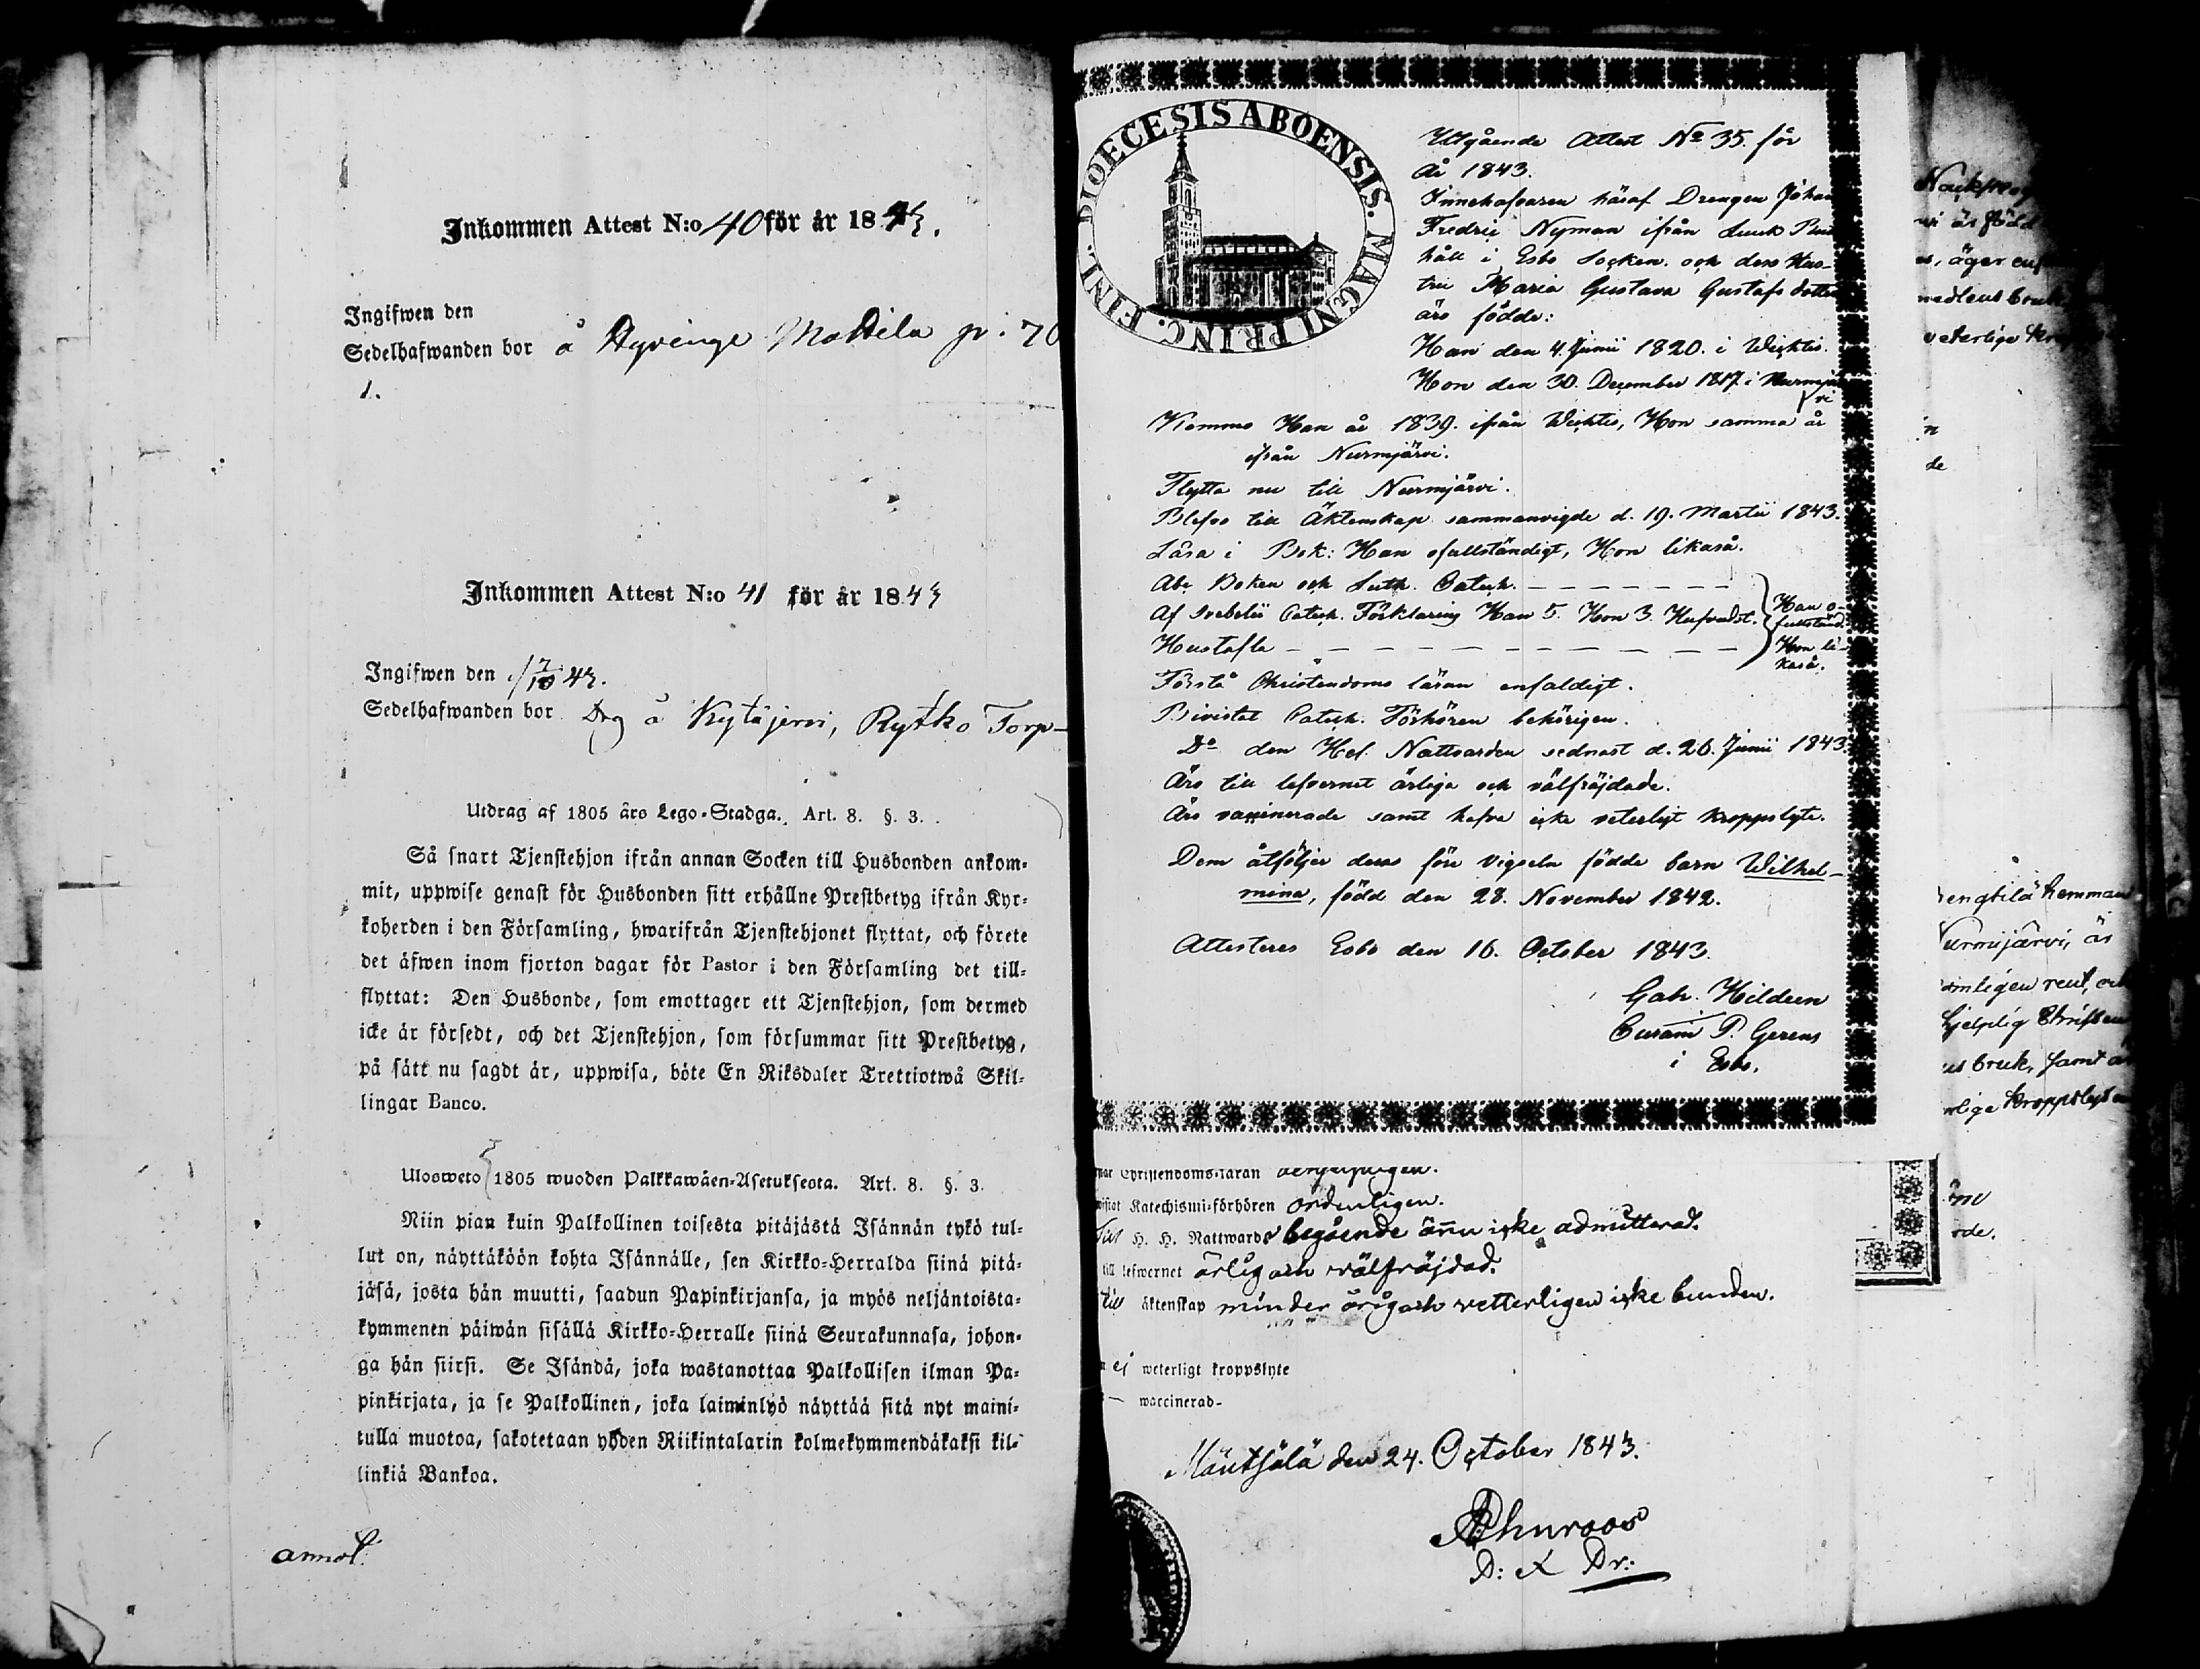 Inkommen Attest N:o 40 för år 1843.
Ingifwen den
Sedelhafwanden bor å Hyvinge Mattila p: 70
1.
Inkommen Attest N:o 41 för år 1843
Ingifwen den 1/10 43.
Sedelhafwanden bor Drg å Kytäjervi, Rytko Torp
Utdrag af 1805 års Lego-Stadga. Art. 8. §. 3.
Så snart Tjenstehjon ifrån annan Socken till Husbonden ankom-
mit, uppwise genast för Husbonden sitt erhållne Prestbetyg ifrån Kyr-
koherden i den Församling, hwarifrån Tjenstehjonet flyttat, och förete
det äfwen inom fjorton dagar för Pastor i den Församling det till-
flyttat: Den Husbonde, som emottager ett Tjenstehjon, som dermed
icke är försedt, och det Tjenstehjon, som försummar sitt Prestbetyg,
på sätt nu sagdt är, uppwisa, böte En Riksdaler Trettiotwå Skil-
lingar Banco.
Ulosweto 1805 wuoden Palkkawäen-Asetuksesta. Art. 8. §. 3.
Niin pian kuin Palkollinen toisesta pitäjästä Isännän tykö tul-
lut on, näyttäköön kohta Isännälle, sen Kirkko-Herralda siinä pitä-
jäsä, josta hän muutti, saadun Papinkirjansa, ja myös neljäntoista-
kymmenen päiwän sisällä Kirkko-Herralle siinä Seurakunnasa, johon-
ga hän siirsi. Se Isändä, joka wastanottaa Palkollisen ilman Pa-
pinkirjata, ja se Palkollinen, joka laiminlyö näyttää sitä nyt maini-
tulla muotoa, sakotetaan yhden Riikintalarin kolmekymmendäkaksi kil-
linkiä Bankoa.
annot.
DIOECESIS ABOENSIS. MAGNI PRINC. FINL.
Utgående Attest No 35. för
år 1843.
Innehafvaren häraf Drengen Johan
Fredric Nyman ifrån Luuk
håll i Esbo Socken. och dess Hus-
tru Maria Gustava Gustafs dotter
äro födde:
Han den 4. Junii 1820. i Wichtis.
Hon den 30. December 1817. i Nurmjär
vi
Kommo Han år 1839. ifrån Wichtis, Hon samma år
ifrån Nurmjärvi.
Flytta nu till Nurmjärvi.
Blefvo till Äktenskap sammanvigde d. 19. Martii 1843.
Läsa i Bok: Han ofullständigt, Hon likaså.
Abc Boken och Luth. Catech. — — — — — — —
Af Svebelii Catech. Förklaring Han 5. Hon 3. Hufvudst. Han o-
fullständ.
Hustafla — — — — — — — — — — Hon li-
kaså.
Förstå Christendoms läran enfaldigt.
Bivistat Catech. Förhören behörigen.
Do den Hel. Nattvarden sednast d. 26. Junii 1843.
Äro till lefvernet ärliga och välfräjdade.
Äro vaccinerade samt hafva icke veterligt kroppslyte.
Dem åtföljer deras före vigseln födde barn Wilhel-
mina, född den 28. November 1842.
Attesteres Esbo den 16. October 1843.
Gab. Hildeen
Curam P. Gerens
i Esbo.
Christendoms-läran
Katechismi-förhören ordentligen.
Till H. H. Nattwards begående ännu icke admitterad.
till lefwernet ärlig och välfräjdad.
Till äktenskap minder årig och vetterligen icke bunden.
ej weterligt kroppslyte
— waccinerad-
Mäntsälä den 24. October 1843.
D: & Dr:
är född
veterlige
n
de
hemman
Nurmijärvi, är
us bruk, samt
kroppslyte
rde.